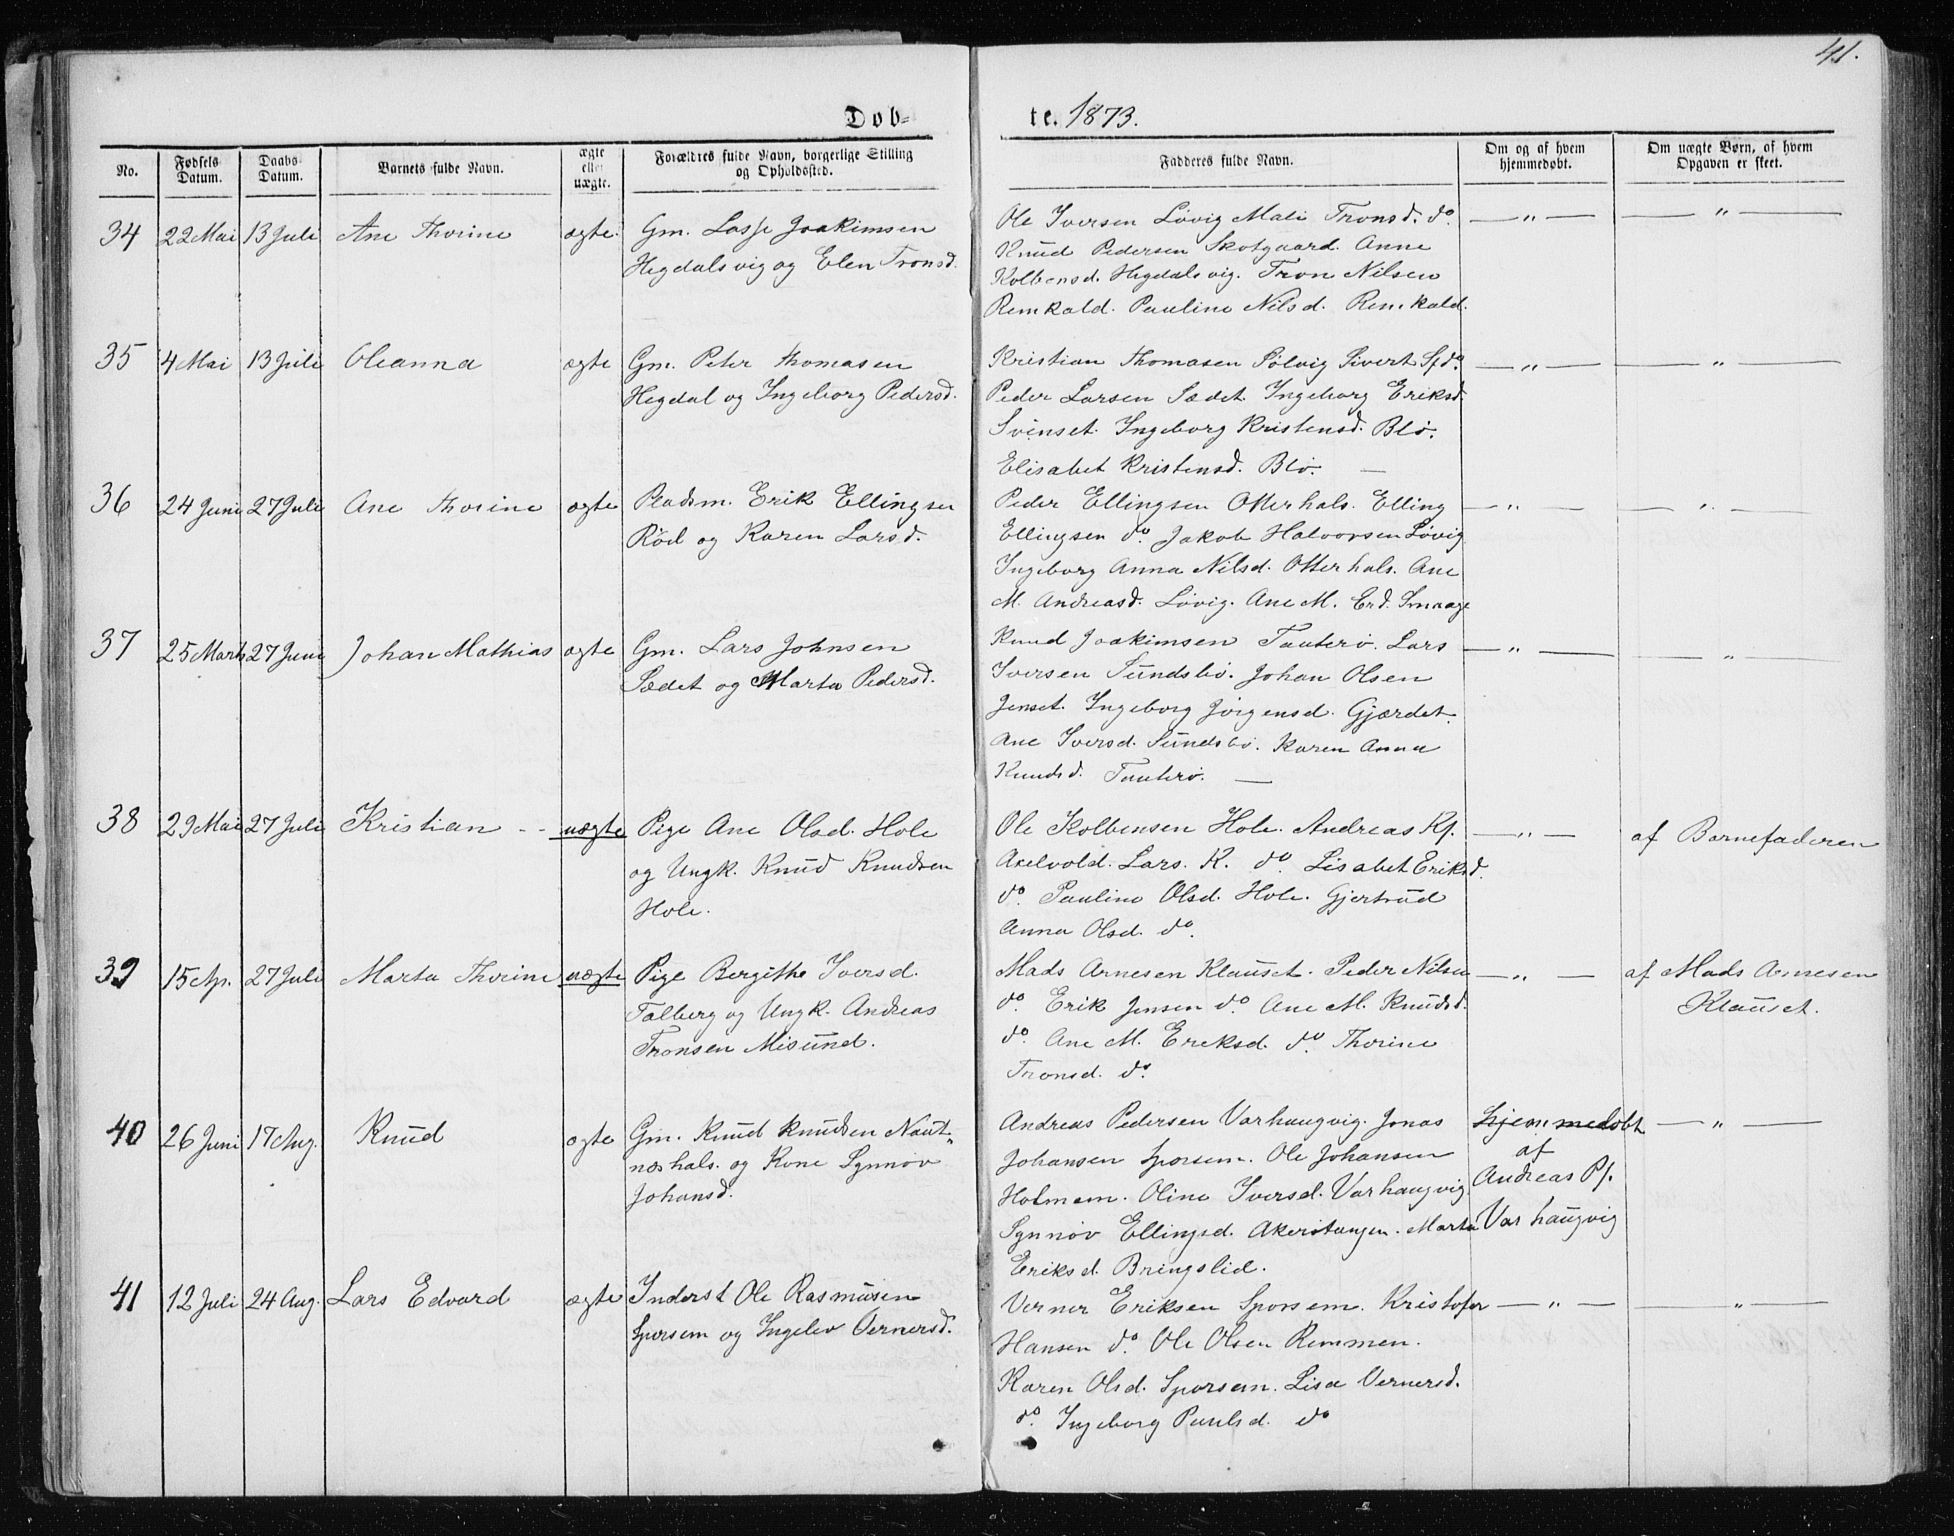 41.
Døb-
te. 1873.
No.
Fødsels Datum.
Daabs Datum.
Barnets fulde Navn.
ægte eller uægte.
Forældres fulde Navn, borgerlige Stilling og Opholdssted.
Fadderes fulde Navn.
Om og af hvem hjemmedøbt.
Om uægte Børn, af hvem Opgaven er skeet.
34 22 Mai 13 Juli Ane Thorine ægte. Gm. Lasse Joakimsen
Hegdalsvig og Elen Tronsd.
Ole Iversen Løvig Mali Tronsd. do — „ — — „ —
Knud Pedersen Skotgaard. Anne
Kolbensd. Hegdalsvig. Tron Nilsen
Remkald. Pauline Nilsd. Remkald.
35 4 Mai 13 Juli Oleanna ægte Gm. Peter Thomasen
Hegdal og Ingeborg Pedersd.
Kristian Thomasen Sølvig Sivert do — „ — — „ —
Peder Larsen Sædet Ingeborg Eriksd.
Svinset. Ingeborg Kristensd. Blø.
Elisabet Kristensd. Blø. —
36 24 Juni 27 Juli Ane Thorine ægte Pladsm. Erik Ellingsen
Rød og Karen Larsd.
Peder Ellingsen Otterhals. Elling — „ — — „ —
Ellingsen do Jakob Halvorsen Løvig
Ingeborg Anna Nilsd. Otterhals. Ane
M. Andreasd. Løvig. Ane M. Erd. Smaage
37 25 Marts 27 Juni Johan Mathias ægte Gm. Lars Johnsen
Sædet og Marta Pedersd.
Knud Joakimsen Tauterø. Lars — „ — — „ —
Iversen Sundsbø. Johan Olsen
Jenset. Ingeborg Jørgensd. Gjærdet.
Ane Iversd. Sundsbø. Karen Anna
Knudsd. Tauterø. —
38 29 Mai 27 Juli Kristian - - uægte Pige Ane Olsd. Hole
og Ungk. Knud Knudsen
Hole.
Ole Kolbensen Hole. Andreas Kf. — „ — af Barnefaderen
Axelvold. Lars. K. do Lisabet Eriksd.
do Pauline Olsd. Hole. Gjertrud
Anna Olsd. do
39 15 Ap. 27 Juli Marta Thorine uægte Pige Bergithe Iversd.
Talberg og Ungk. Andreas
Tronsen Misund.
Mads Arnesen Klauset. Peder Nilsen — „ — af Mads Arnesen
Klauset.
do Erik Jensen do Ane M. Knudsd.
do Ane M. Ereksd. do Thorine
Tronsd. do
40 26 Juni 17 Aug. Knud ægte Gm. Knud Knudsen Naut-
neshals. og Kone Synnøv
Johansd.
Andreas Pedersen Varhaugvig. Jonas
Johansen Sporsem. Ole Johansen
Holmem. Oline Iversd. Varhaugvig
Synnøv Ellingsd. Akerstangen. Marta
Eriksd. Bringslid.
Hjemmedøbt — „ —
af
Andreas Pf.
Varhaugvig
41 12 Juli 24 Aug. Lars Edvard ægte Inderst Ole Rasmusen
Sporsem og Ingelev Vernersd.
Verner Eriksen Sporsem. Kristofer — „ — — „ —
Hansen do Ole Olsen Remmen.
Karen Olsd. Sporsem. Lisa Vernersd.
do Ingeborg Paulsd. do